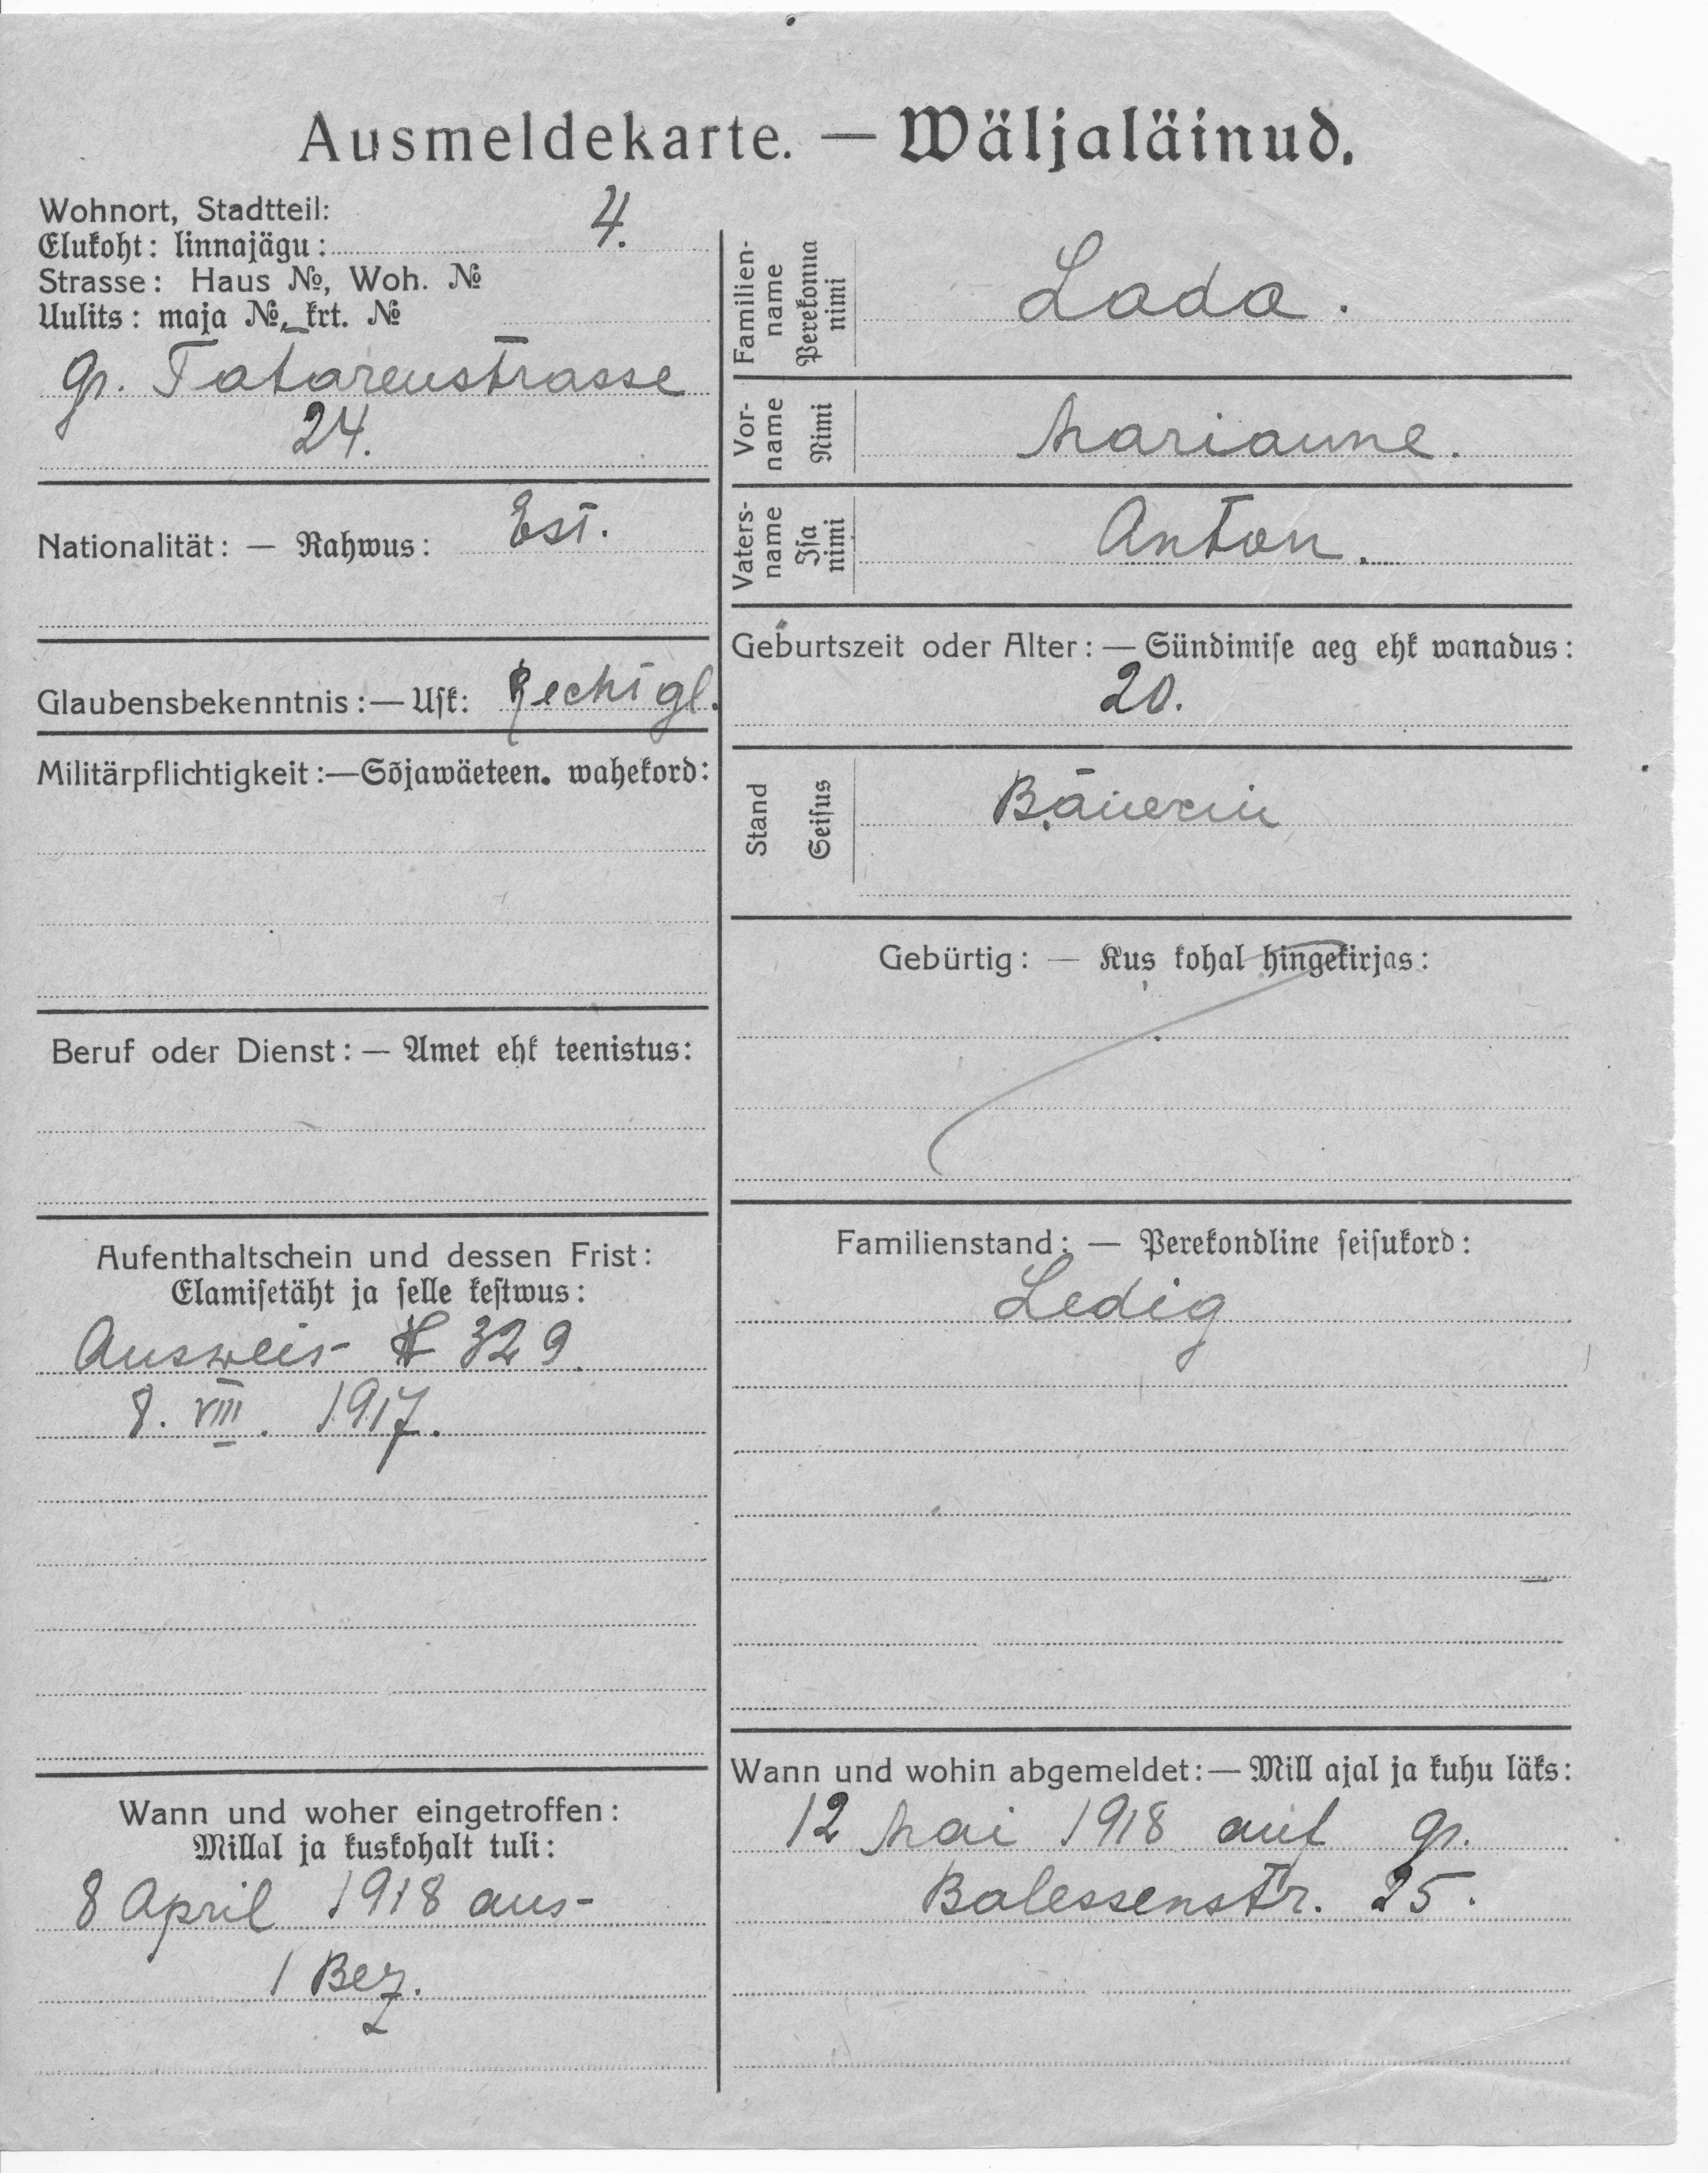 Ausmeldekarte. — Wäljaläinud.
Wohnort, Stadtteil:
Elukoht: linnajägu: 4.
Strasse: Haus №, Woh. №
Uulits: maja №, krt. №
gr. Tatarenstrasse
24.
Nationalität: — Rahwus: Est.
Glaubensbekenntnis: — Usk: Rechtgl.
Militärpflichtigkeit: — Sõjawäeteen. wahekord:
Beruf oder Dienst: — Amet ehk teenistus:
Aufenthaltschein und dessen Frist:
Elamisetäht ja selle kestwus:
Ausweis № 329.
8. VIII. 1917.
Wann und woher eingetroffen:
Millal ja kuskohalt tuli:
8 April 1918 aus
1 Bez.
Familien-
name
Perekonna
nimi
Lada.
Vor-
name
Nimi
Marianne.
Vaters-
name
Isa
nimi
Anton.
Geburtszeit oder Alter: — Sündimise aeg ehk wanadus:
20.
Stand
Seisus
Bäuerin
Gebürtig: — Kus kohal hingekirjas:
Familienstand: — Perekondline seisukord:
Ledig
Wann und wohin abgemeldet: — Mill ajal ja kuhu läks:
12 Mai 1918 auf gr.
Balessenstr. 25.